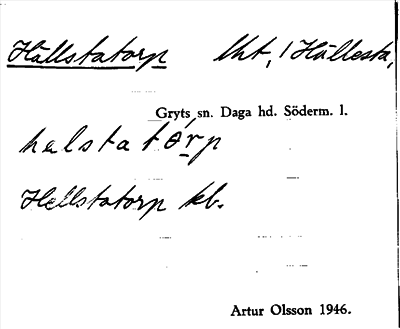 Hällstatorp lht, / Hällesta,
Gryts sn. Daga hd. Söderm. l.
halstatórp
Hellstatorp kb.
Artur Olsson 1946.